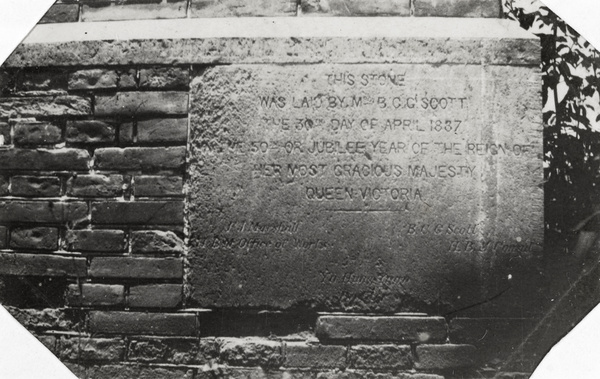 THIS STONE
WAS LAID BY Mrs B.C.G. SCOTT
THE 30TH DAY OF APRIL 1887
THE 50TH OR JUBILEE YEAR OF THE REIGN OF
HER MOST GRACIOUS MAJESTY
QUEEN VICTORIA
F. J. Marshall B.C.G. Scott
H.B.M. Office of Works H.B.M.
&